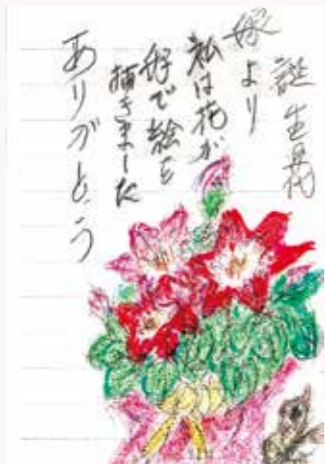 誕生花
嫁より
私は花が
好で絵を
描きました
ありがとう